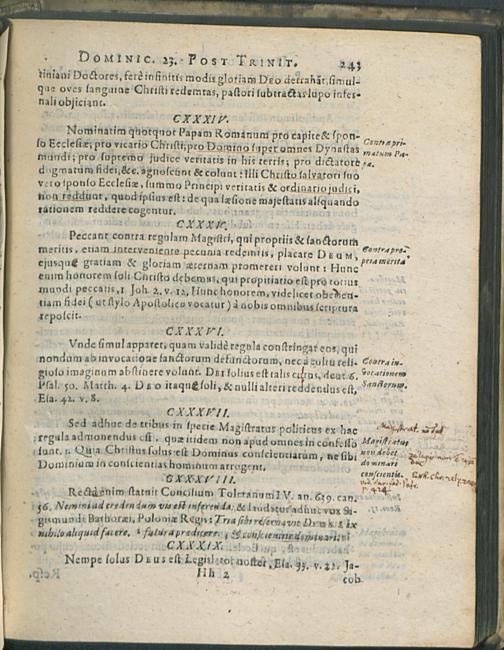 DOMINIC. 23. POST TRINIT. 243
tiniani Doctores, ferè infinitis modis gloriam DEO detrahãt, simul-
que oves sanguine Christi redemtas, pastori subtractas lupo infer-
nali objiciant.
CXXXIV.
Nominatim quotquot Papam Romanum pro capite & spon-
so Ecclesiæ; pro vicario Christi; pro Domino super omnes Dynastas
mundi; pro supremo judice veritatis in his terris; pro dictatore
dogmatum fidei, &c. agnoscunt & colunt: Illi Christo salvatori suo
vero sponso Ecclesiæ, summo Principi veritatis & ordinario judici,
non reddunt, quod ipsius est: de qua læsione majestatis aliquando
rationem reddere cogentur.
Contra pri-
matum Pa-
pæ.
CXXXV.
Peccant contra regulam Magistri, qui propriis & sanctorum
meritis, etiam interveniente pecunia redemtis, placare DEUM,
ejusque gratiam & gloriam æternam promereri volunt: Hunc
enim honorem soli Christo debemus, qui propitiatio est pro totius
mundi peccatis, 1. Joh. 2. v. 12, Hunc honorem, videlicet obedien-
tiam fidei (ut stylo Apostolico vocatur) à nobis omnibus scriptura
reposcit.
Contra pro-
pria merita
CXXXVI.
Vnde simul apparet, quam validè regula constringat eos, qui
nondum ab invocatione sanctorum defunctorum, nec à cultu reli-
gioso imaginum abstinere volunt. DEI solius est talis cultus, deut. 6.
Psal. 50. Matth. 4. DEO itaque soli, & nulli alteri reddendus est,
Esa. 42. v. 8.
Contra in-
vocationem
Sanctorum.
CXXXVII.
Sed adhuc de tribus in specie Magistratus politicus ex hac
regula admonendus est, quæ itidem non apud omnes in confesso
sunt. 1. Quia Christus solus est Dominus conscientiarum, ne sibi
Dominium in conscientias hominum arrogent.
Magistratus
non debet
dominari
conscientiæ.
CXXXVIII.
Recte enim statuit Concilium Toletanum IV. an. 639. can.
56. Nemini ad credendum vis est inferenda: & laudatur adhuc vox Si-
gismundi Bathoræi, Poloniæ Regis: Tria sibi reservavit DEUS: Ex
nihilo aliquid facere, futura prædicere, & conscientiæ dominari.
CXXXIX.
Nempe solus DEUS est Legislator noster, Esa. 33. v. 22. Ja-
Hh 2 cob